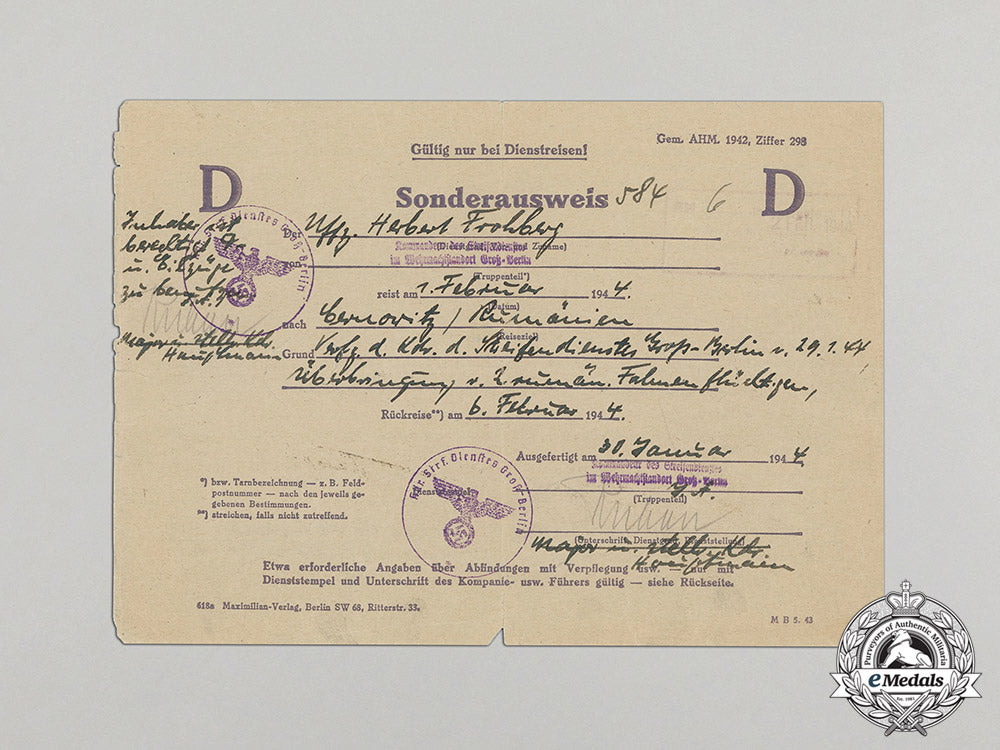 Gültig nur bei Dienstreisen!
Gem. AHM. 1942, Ziffer 298
D
Sonderausweis 584
6
D
Inhaber ist
berechtigt
u. Eilzüge
zu benutzen
Major u. stellv. Kdr.
Hauptmann
Uffz. Herbert Frohberg
(Dienstgrad, Vor- und Zuname)
Kommandeur des Streifendienstes
im Wehrmachtstandort Groß-Berlin
von
(Truppenteil*)
reist am 1. Februar 1944.
(Datum)
nach Cernowitz / Rumänien
(Reiseziel)
Grund Verfg. d. Kdr. d. Streifendienstes Groß-Berlin v. 29.1.44
Überbringung v. 2 rumän. Fahnenflüchtigen,
Rückreise**) am 6. Februar 1944.
Ausgefertigt am 30. Januar 1944
Kommandeur des Streifendienstes
im Wehrmachtstandort Groß-Berlin
(Truppenteil)
I.A.
Kdr. Strf. Dienstes Groß-Berlin
(Unterschrift, Dienstgrad, Dienststellung)
Major u. stellv. Kdr.
Hauptmann
*) bzw. Tarnbezeichnung — z. B. Feld-
postnummer — nach den jeweils ge-
gebenen Bestimmungen.
**) streichen, falls nicht zutreffend.
Etwa erforderliche Angaben über Abfindungen mit Verpflegung usw. — nur mit
Dienststempel und Unterschrift des Kompanie- usw. Führers gültig — siehe Rückseite.
618a Maximilian-Verlag, Berlin SW 68, Ritterstr. 33.
M B 5. 43
Purveyors of Authentic Militaria
eMedals
Est. 1981